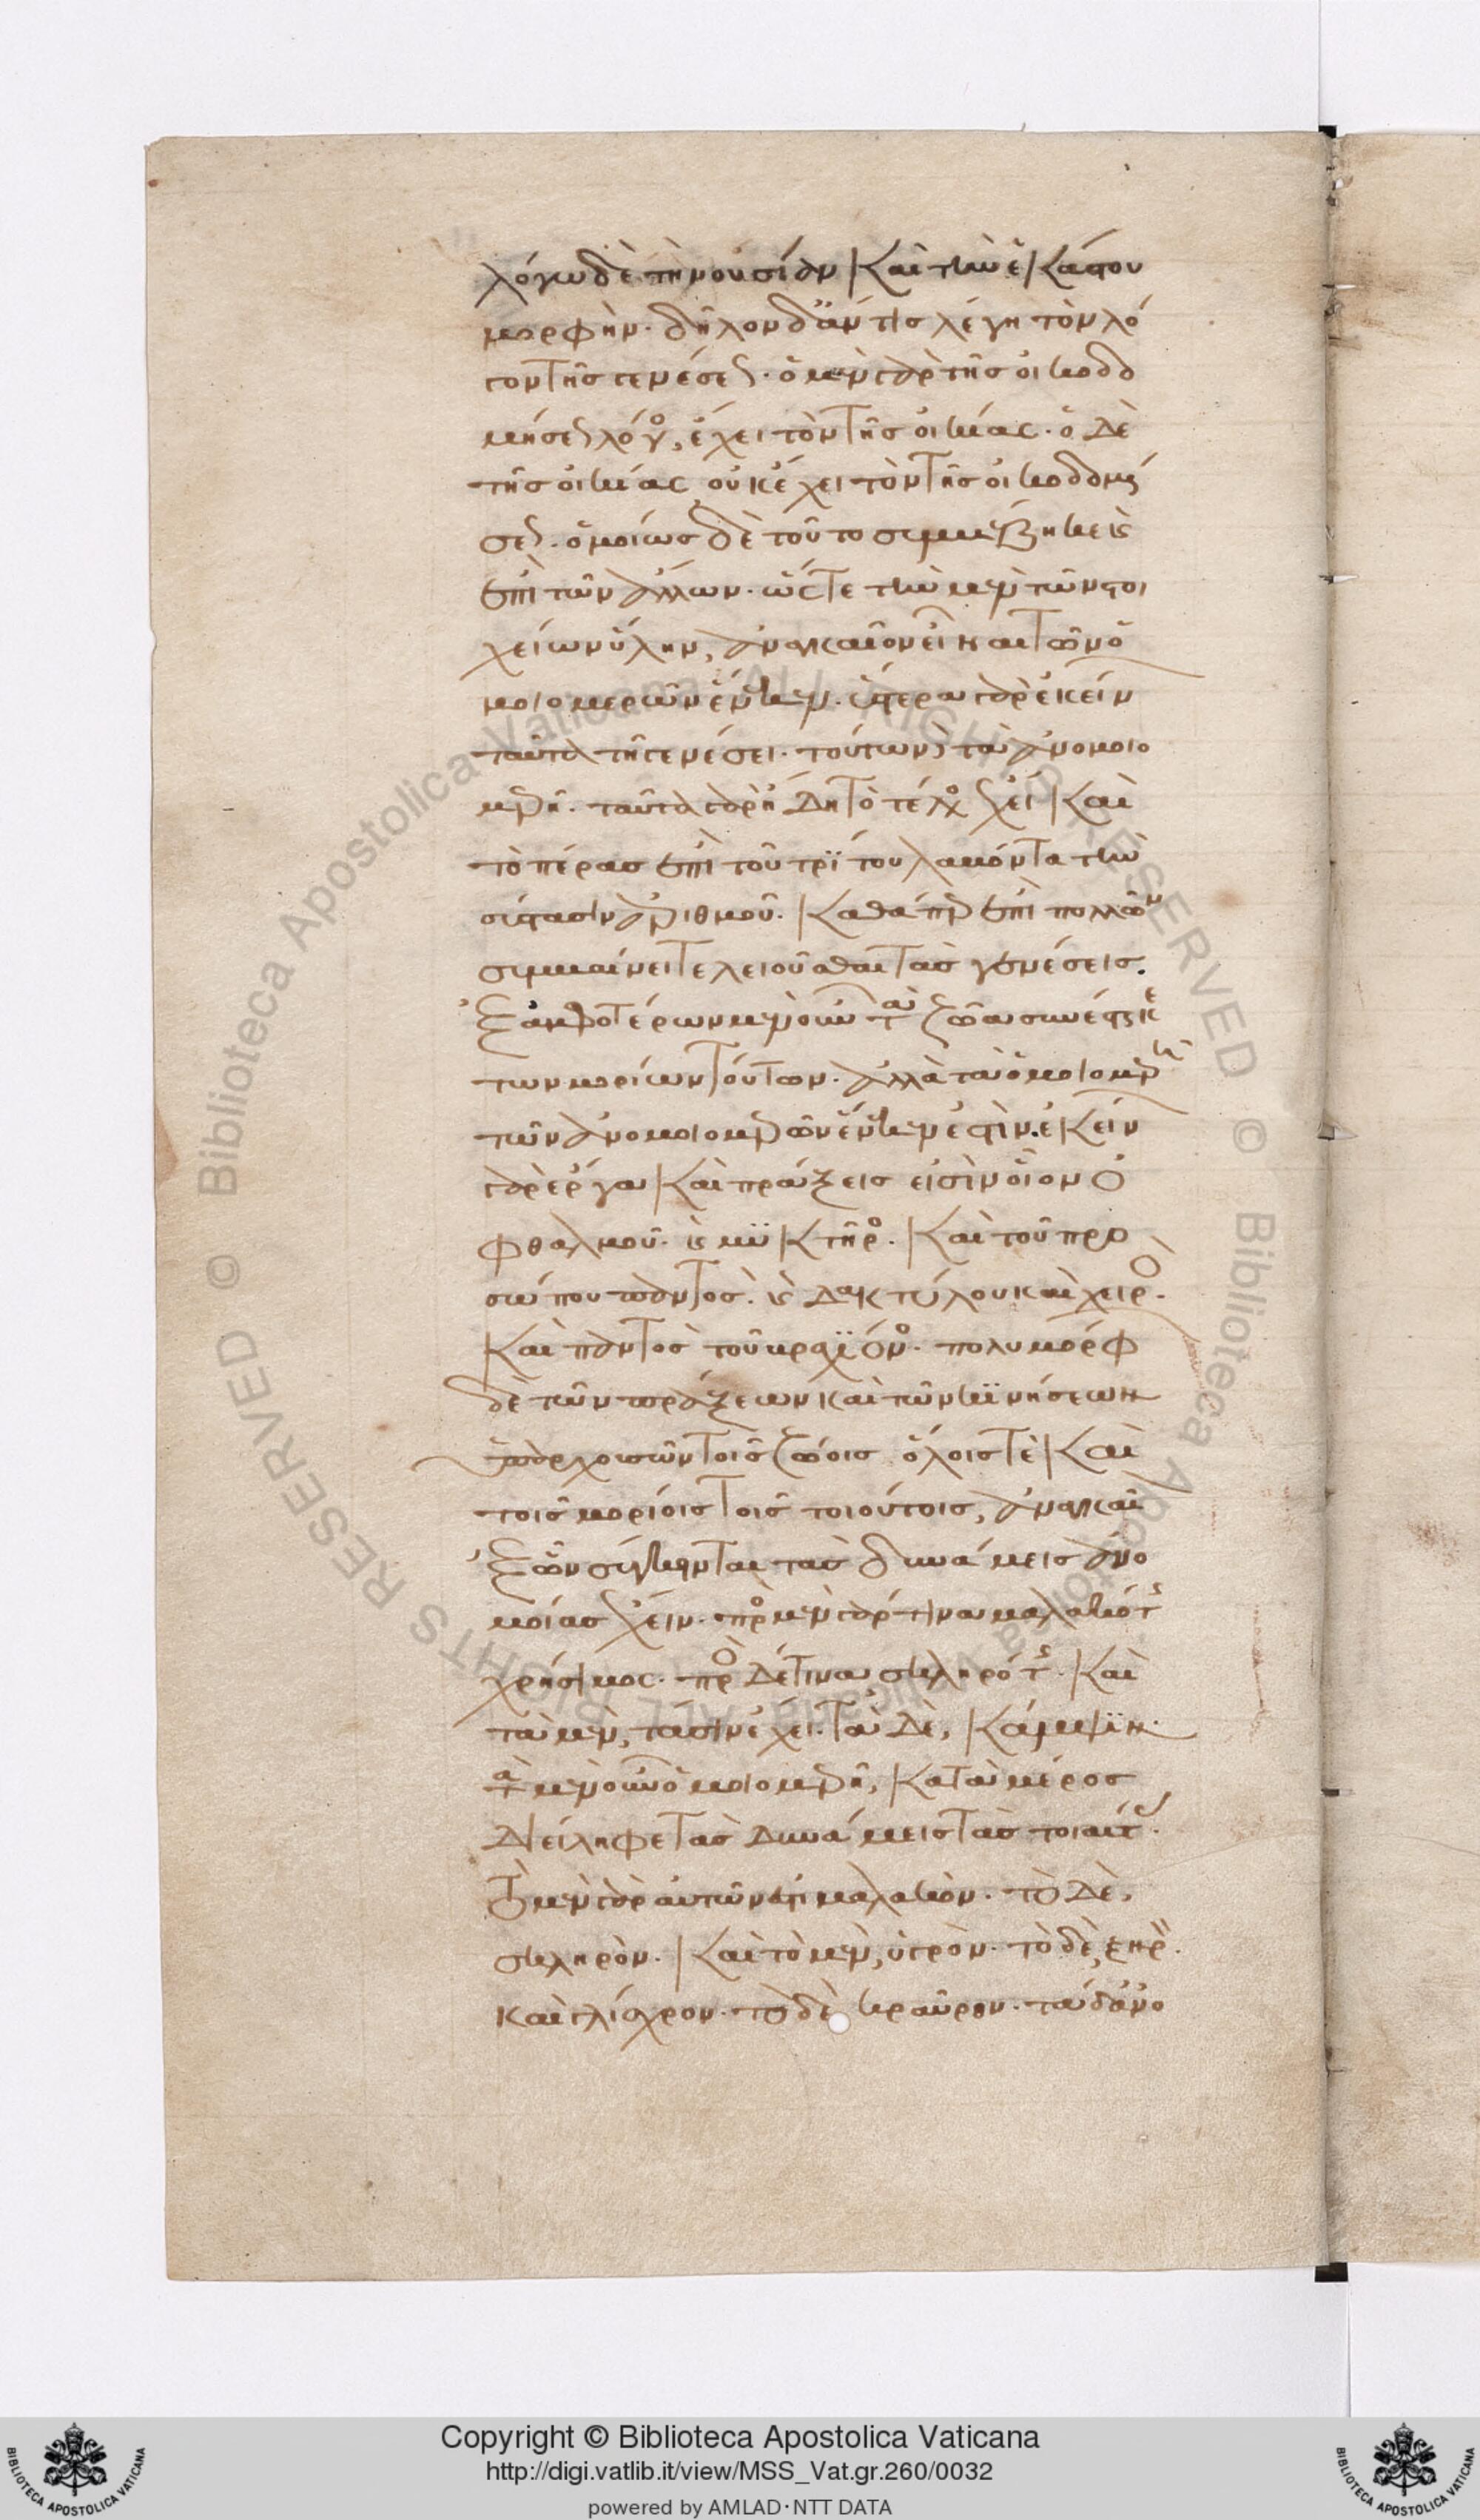 λόγω δὲ τὴν οὐσίαν καὶ τὴν ἑκάστου
μορφήν· δῆλον δ' ἄν τις λέγη τὸν λό
γον τῆς γενέσεως· ὁ μὲν γὰρ τῆς οἰκοδο
μήσεως λόγος, ἔχει τὸν τῆς οἰκίας· ὁ δὲ
τῆς οἰκίας οὐκ ἔχει τὸν τῆς οἰκοδομή
σεως· ὁμοίως δὲ τοῦτο συμβέβηκε καὶ
ἐπὶ τῶν ἄλλων· ὥστε τὴν μὲν τῶν στοι
χείων ὕλην, ἀναγκαῖον εἶναι τῶν ὁ
μοιομερῶν ἕνεκεν· ὕστερα γὰρ ἐκείνων
ταῦτα τῆ γενέσει· τούτων δὲ τὰ ἀνομοιο
μερῆ· ταῦτα γὰρ ἤδη τὸ τέλος ἔχει καὶ
τὸ πέρας ἐπὶ τοῦ τρίτου λαβόντα τὴν
σύστασιν ἀριθμοῦ· καθάπερ ἐπὶ πολλῶν
συμβαίνει τελειοῦσθαι τὰς γενέσεις.
ἐξ ἀμφοτέρων μὲν οὖν τὰ ζῶα συνέστηκε
τῶν μορίων τούτων· ἀλλὰ τὰ ὁμοιομερῆ
τῶν ἀνομοιομερῶν ἕνεκεν ἐστὶν· ἐκείνων
γὰρ ἔργα καὶ πράξεις εἰσὶν οἷον ὀ
φθαλμοῦ· καὶ μυκτῆρος· καὶ τοῦ προ
σώπου παντὸς· καὶ δακτύλου καὶ χειρὸς·
καὶ παντὸς τοῦ βραχίονος· πολυμόρφων
δὲ τῶν πράξεων καὶ τῶν κινήσεων
ὑπαρχουσῶν τοῖς ζώοις ὅλοις τὲ καὶ
τοῖς μορίοις τοῖς τοιούτοις, ἀναγκαῖον
ἐξ ὧν σύγκεινται τὰς δυνάμεις ἀνο
μοίας ἔχειν· πρὸς μὲν γάρ τινα μαλακότης
χρήσιμος· πρὸς δέ τινα σκληρότης· καὶ
τὰ μὲν, τάσιν ἔχει· τὰ δὲ, κάμψιν·
τὰ μὲν οὖν ὁμοιομερῆ, κατὰ μέρος
διείληφε τὰς δυνάμεις τὰς τοιαύτας·
τὸ μὲν γὰρ αὐτῶν ἐστι μαλακὸν· τὸ δὲ,
σκληρὸν· καὶ τὸ μὲν, ὑγρὸν· τὸ δὲ, ξηρὸν·
καὶ γλίσχρον· τὸ δὲ κραῦρον· τὰ δ' ἀνο
Copyright © Biblioteca Apostolica Vaticana
http://digi.vatlib.it/view/MSS_Vat.gr.260/0032
powered by AMLAD·NTT DATA